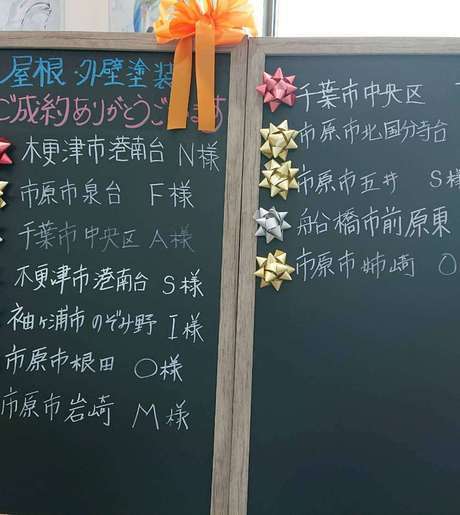 屋根 外壁塗装
ご成約ありがとうございます
木更津市港南台 N様
市原市泉台 F様
千葉市中央区 A様
木更津市港南台 S様
袖ヶ浦市のぞみ野 I様
市原市根田 O様
市原市岩崎 M様
千葉市中央区
市原市北国分寺台
市原市五井 S様
船橋市前原東
市原市姉崎 O